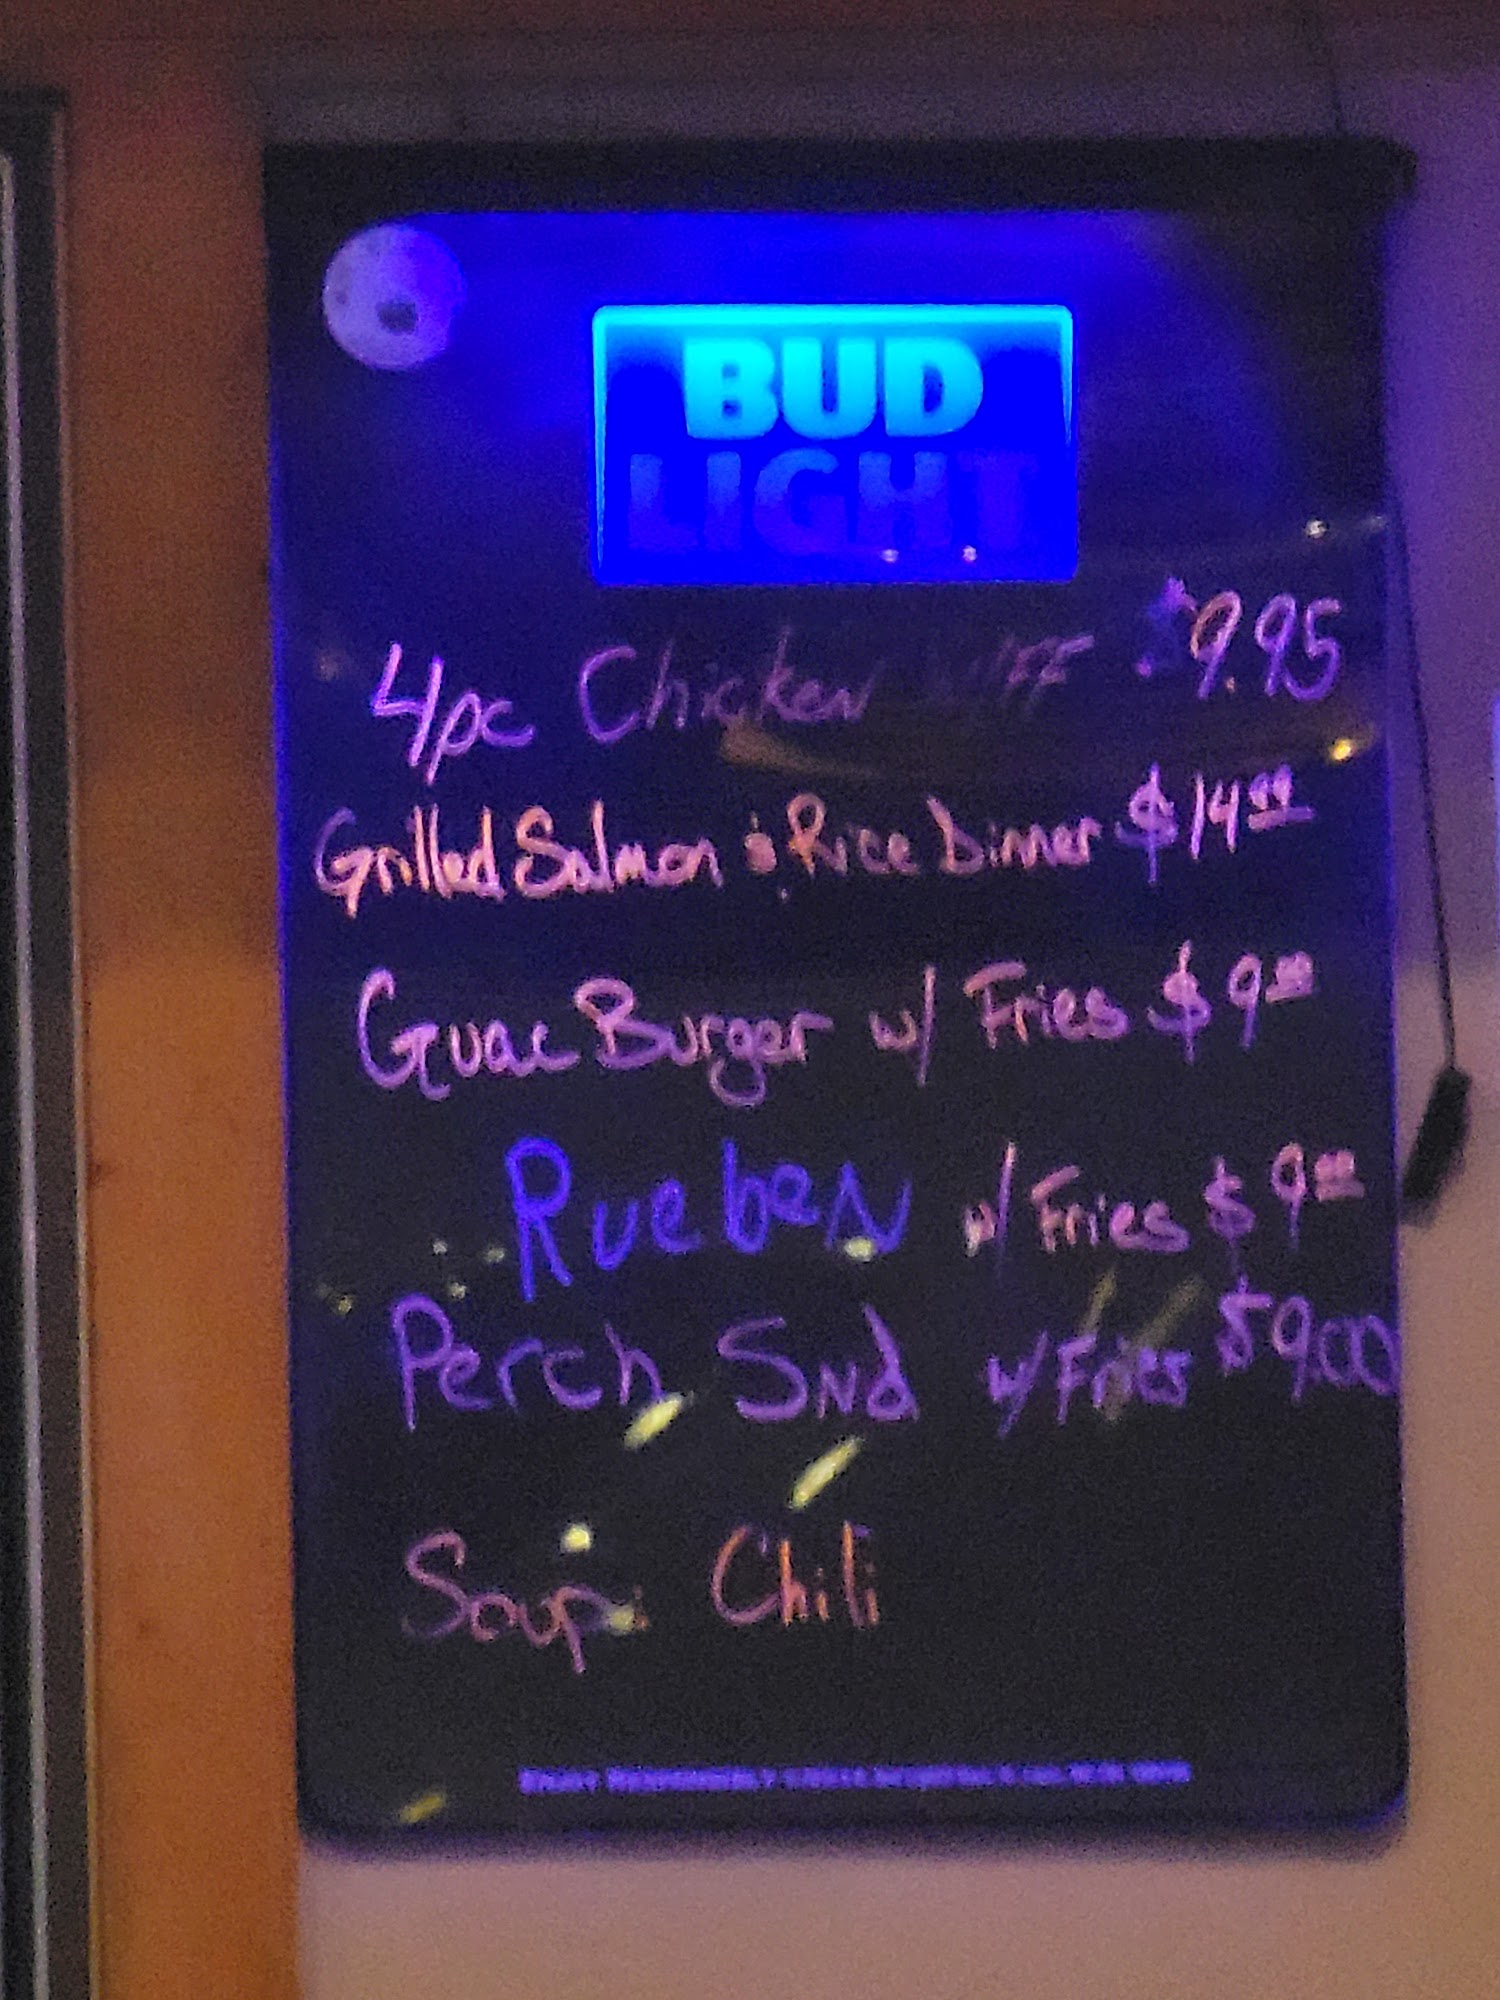 BUD
LIGHT
4pc Chicken w/FF $9.95
Grilled Salmon & Rice Dinner $14.00
Guac Burger w/ Fries $9.00
Rueben w/ Fries $9.00
Perch Snd w/ Fries $9.00
Soup: Chili